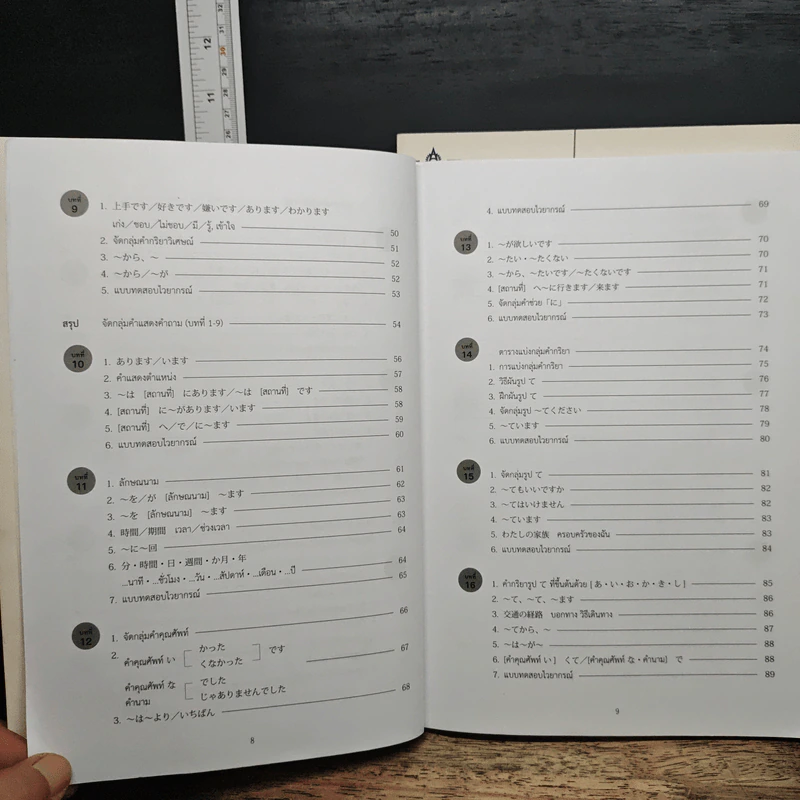 12
30
29
28
11
27
26
บทที่
9
1. 上手です／好きです／嫌いです／あります／わかります
เก่ง／ชอบ／ไม่ชอบ／มี／รู้, เข้าใจ 50
2. จัดกลุ่มคำกริยาวิเศษณ์ 51
3. 〜から、〜 52
4. 〜から／〜が 52
5. แบบทดสอบไวยากรณ์ 53
สรุป จัดกลุ่มคำแสดงคำถาม (บทที่ 1-9) 54
บทที่
10
1. あります／います 56
2. คำแสดงตำแหน่ง 57
3. 〜は [สถานที่] にあります／〜は [สถานที่] です 58
4. [สถานที่] に〜があります／います 58
5. [สถานที่] へ／で／に〜ます 59
6. แบบทดสอบไวยากรณ์ 60
บทที่
11
1. ลักษณนาม 61
2. 〜を／が [ลักษณนาม] 〜ます 62
3. 〜を [ลักษณนาม] 〜ます 63
4. 時間／期間 เวลา／ช่วงเวลา 63
5. 〜に〜回 64
6. 分・時間・日・週間・か月・年
...นาที・...ชั่วโมง・...วัน・...สัปดาห์・...เดือน・...ปี 64
7. แบบทดสอบไวยากรณ์ 65
บทที่
12
1. จัดกลุ่มคำคุณศัพท์ 66
2.
คำคุณศัพท์ い [ かった
くなかった ] です 67
คำคุณศัพท์ な
คำนาม [ でした
じゃありませんでした 68
3. 〜は〜より／いちばん
8
4. แบบทดสอบไวยากรณ์ 69
บทที่
13
1. 〜が欲しいです 70
2. 〜たい・〜たくない 70
3. 〜から、〜たいです／〜たくないです 71
4. [สถานที่] へ〜に行きます／来ます 71
5. จัดกลุ่มคำช่วย「に」 72
6. แบบทดสอบไวยากรณ์ 73
บทที่
14
ตารางแบ่งกลุ่มคำกริยา 74
1. การแบ่งกลุ่มคำกริยา 75
2. วิธีผันรูป て 76
3. ฝึกผันรูป て 77
4. จัดกลุ่มรูป 〜てください 78
5. 〜ています 79
6. แบบทดสอบไวยากรณ์ 80
บทที่
15
1. จัดกลุ่มรูป て 81
2. 〜てもいいですか 82
3. 〜てはいけません 82
4. 〜ています 83
5. わたしの家族 ครอบครัวของฉัน 83
6. แบบทดสอบไวยากรณ์ 84
บทที่
16
1. คำกริยารูป て ที่ขึ้นต้นด้วย [ あ・い・お・か・き・し ] 85
2. 〜て、〜て、〜ます 86
3. 交通の経路 บอกทาง วิธีเดินทาง 86
4. 〜てから、〜 87
5. 〜は〜が〜 88
6. [คำคุณศัพท์ い ] くて／[คำคุณศัพท์ な・คำนาม] で 88
7. แบบทดสอบไวยากรณ์ 89
9